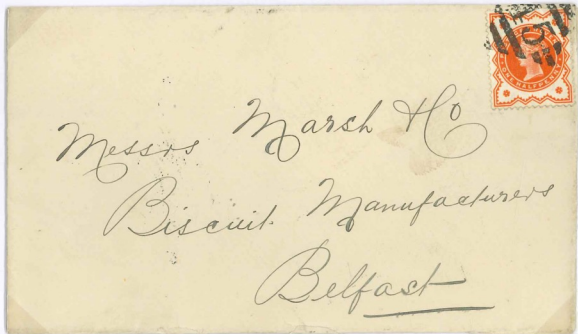 Messrs Marsh & Co
Biscuit Manufacturers
Belfast